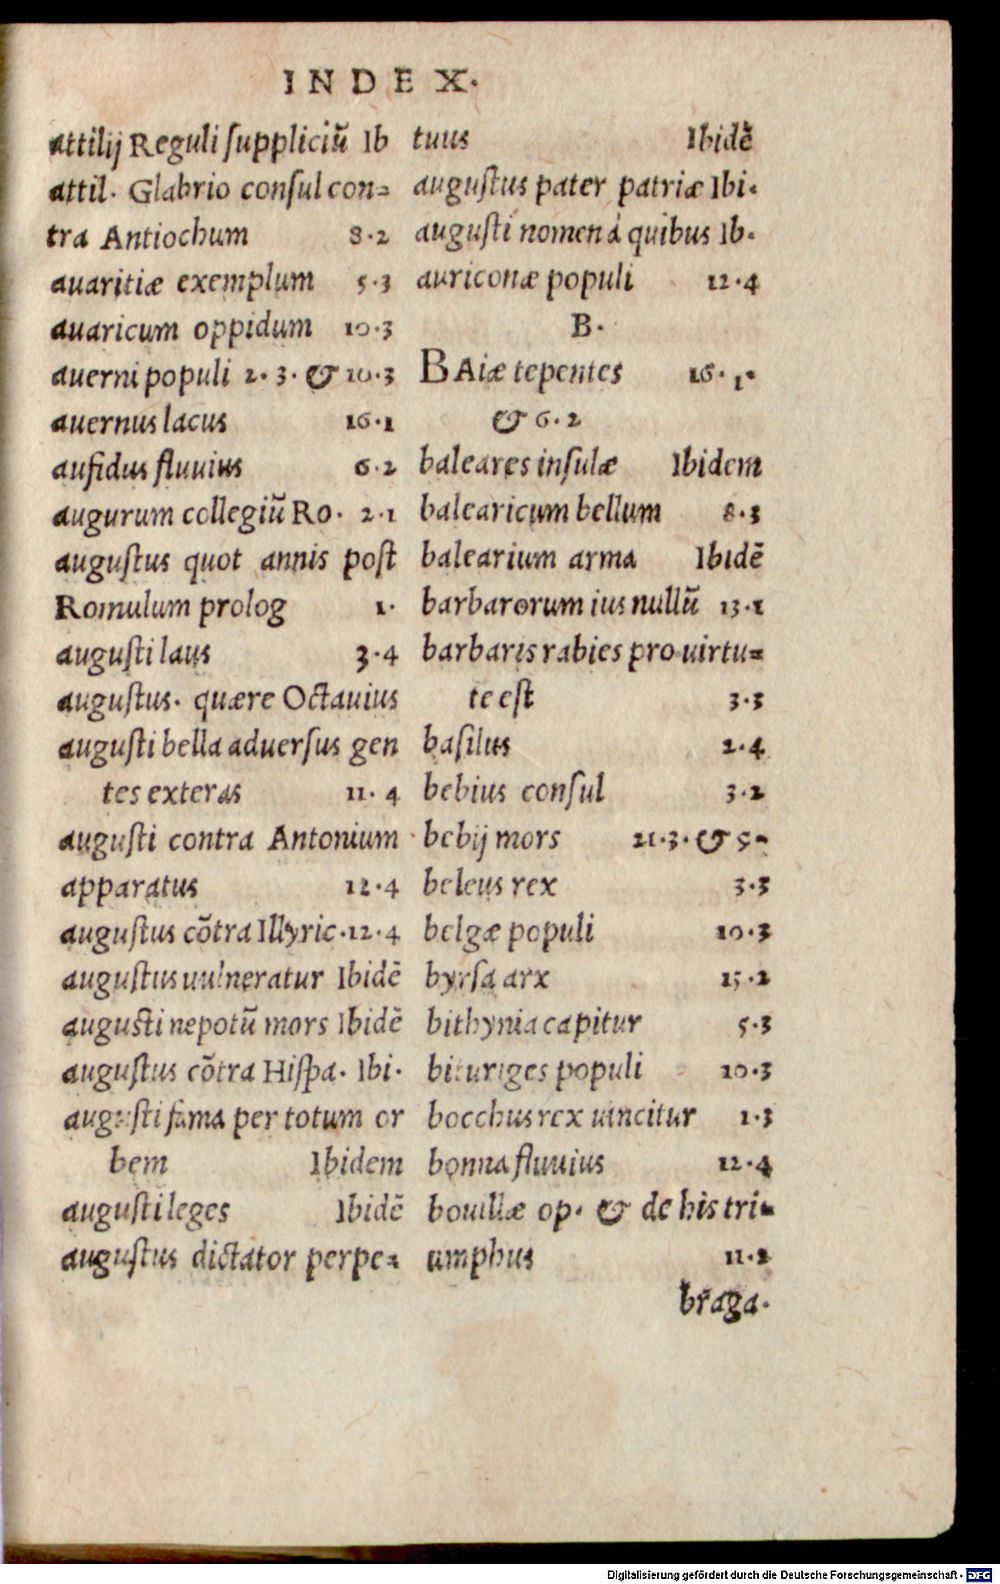 INDEX.
attilij Reguli suppliciũ Ib
attil. Glabrio consul con=
tra Antiochum 8.2
auaritiæ exemplum 5.3
auaricum oppidum 10.3
auerni populi 2.3. & 10.3
auernus lacus 16.1
aufidus fluuius 6.2
augurum collegiũ Ro. 2.1
auguſtus quot annis poſt
Romulum prolog 1.
auguſti laus 3.4
auguſtus. quære Octauius
auguſti bella aduerſus gen
tes exteras 11.4
auguſti contra Antonium
apparatus 12.4
auguſtus cõtra Illyric.12.4
auguſtus uulneratur Ibidẽ
auguſti nepotũ mors Ibidẽ
auguſtus cõtra Hiſpa. Ibi.
auguſti fama per totum or
bem Ibidem
auguſti leges Ibidẽ
auguſtus dictator perpe=
tuus Ibidẽ
auguſtus pater patriæ Ibi.
auguſti nomen á quibus Ib.
auriconæ populi 12.4
B.
BAiæ tepentes 16.1.
& 6.2
baleares inſulæ Ibidem
balearicum bellum 8.3
balearium arma Ibidẽ
barbarorum ius nullũ 13.1
barbaris rabies pro uirtu=
te eſt 3.3
baſilus 2.4
bebius conſul 3.2
bebij mors 21.3. & 5.
beleus rex 3.3
belgæ populi 10.3
byrſa arx 15.2
bithynia capitur 5.3
bituriges populi 10.3
bocchus rex uincitur 1.3
bonna fluuius 12.4
bouillæ op. & de his tri=
umphus 11.2
braga.
Digitalisierung gefördert durch die Deutsche Forschungsgemeinschaft - DFG